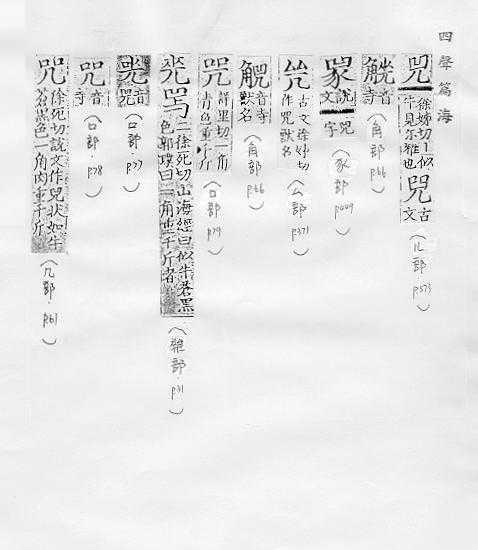 四聲篇海
兕徐姊切上似牛見尔雅也 兕古文（儿部．p573）
觵音寺（角部．p66）
音寺（角部
𧰽說文兕字（豕部．p449）
古文徐姊切作兕獸名（厶部．p371）
音寺獸名（角部．p66）
詳里切一角青色重千斤（口部．p79）
二徐死切山海經曰似牛蒼黑色郭璞曰一角重三千斤者（雜部．p31）
音兕（口部．p77）
音寺（口部．p78）
徐死切說文作兕狀如牛蒼黑色一角肉重千斤（几部．p61）